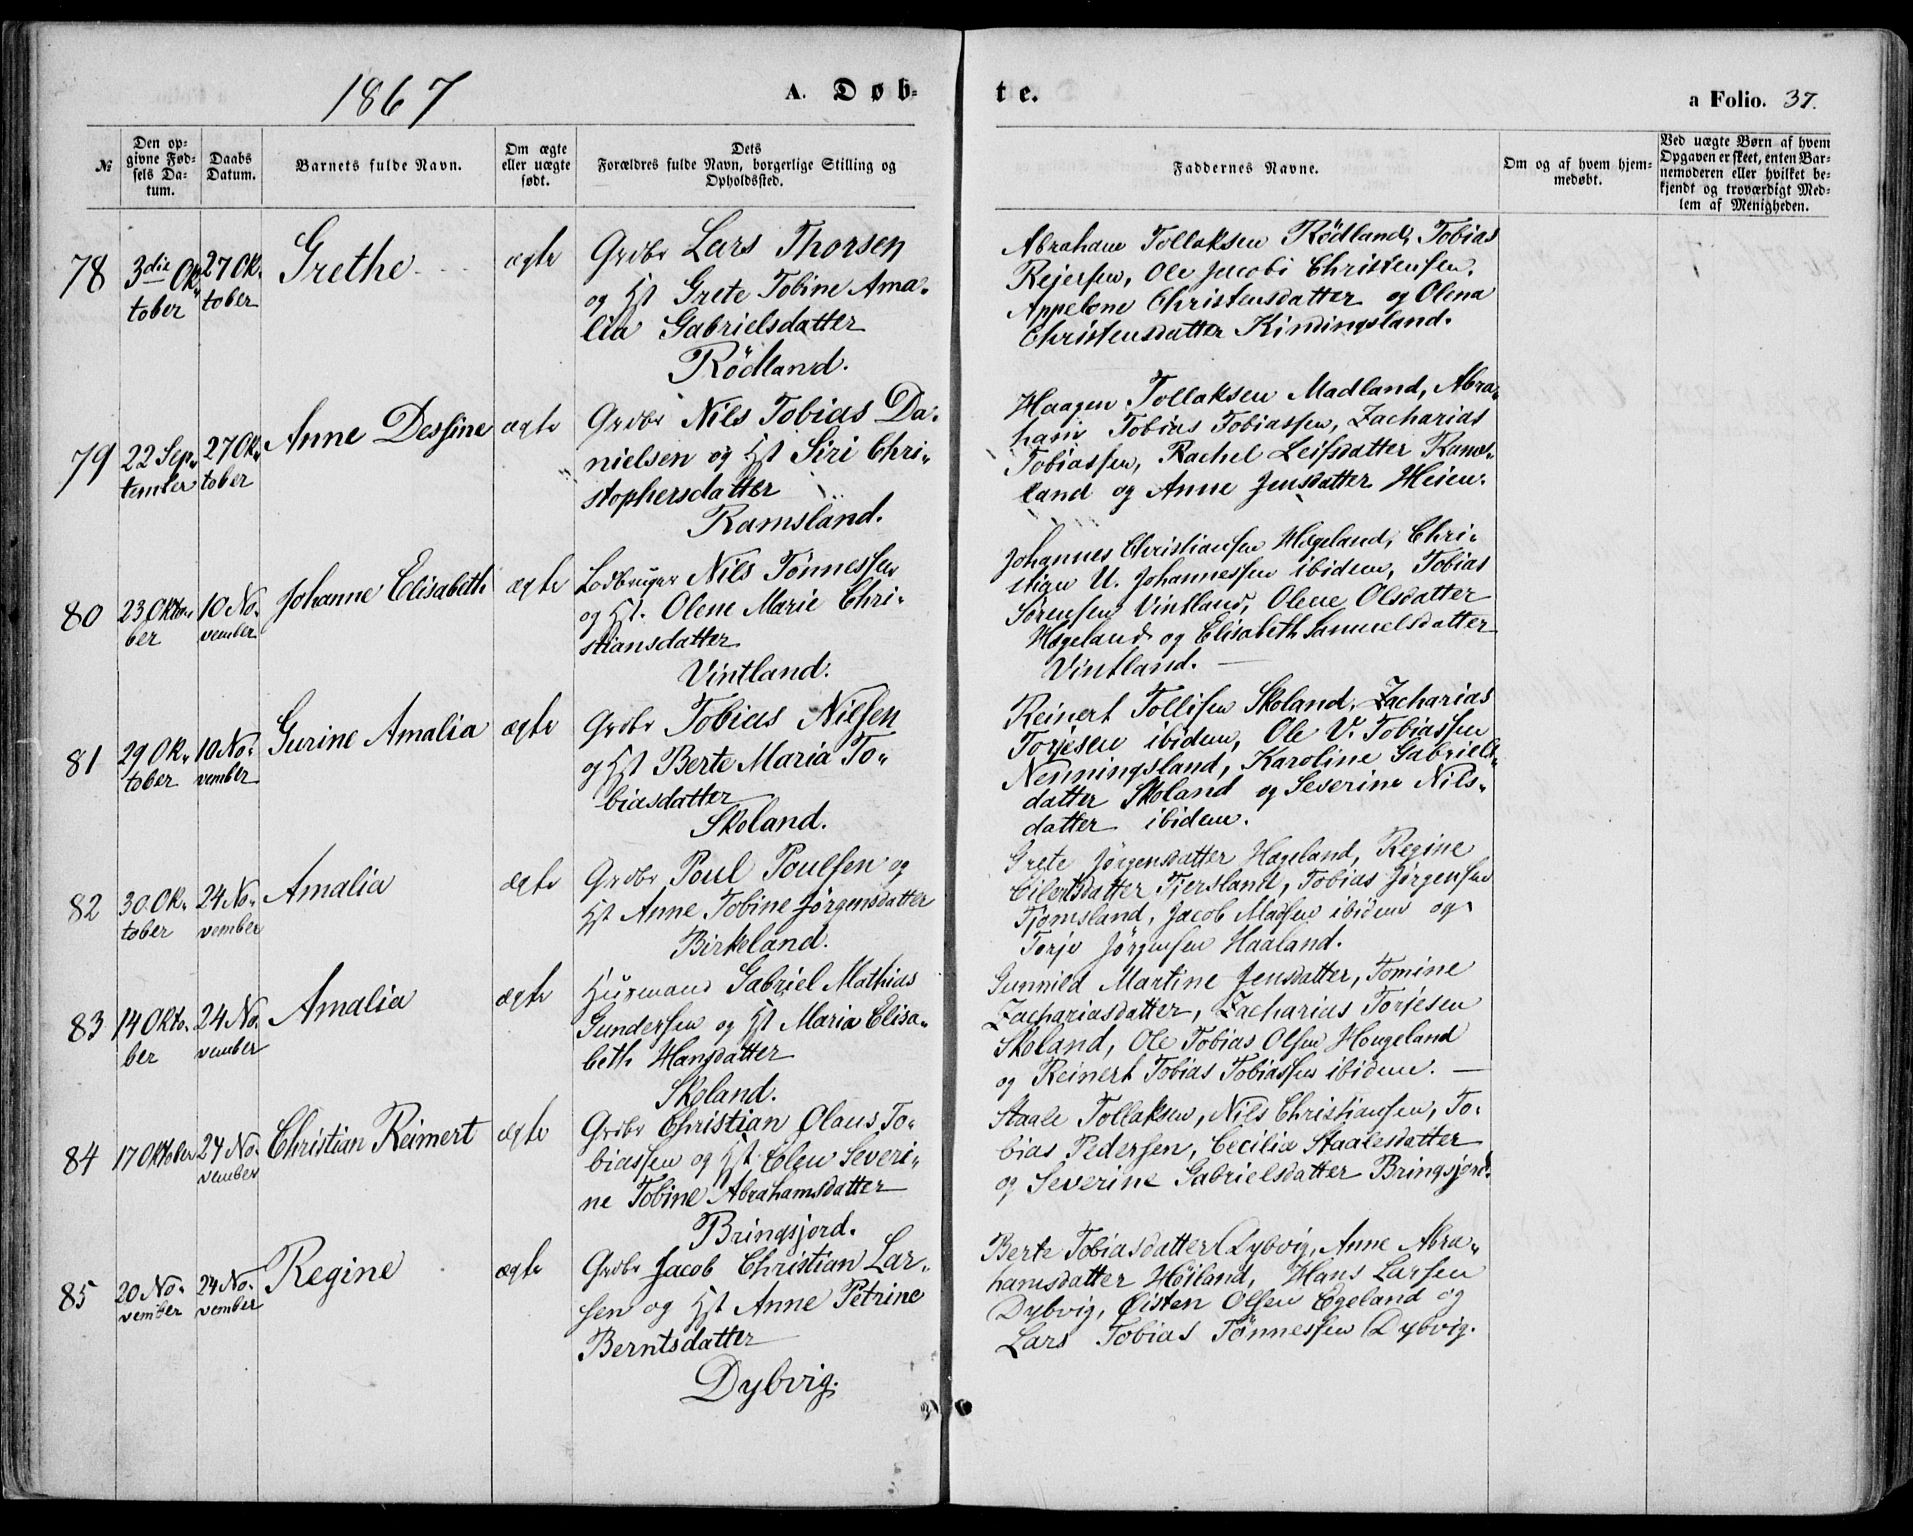 1867
A. Døb-
te.
a Folio. 37.
№
Den op-
givne Fød-
sels Da-
tum.
Daabs
Datum.
Barnets fulde Navn.
Om ægte
eller uægte
født.
Dets
Forældres fulde Navn, borgerlige Stilling og
Opholdssted.
Faddernes Navne.
Om og af hvem hjem-
medøbt.
Ved uægte Børn af hvem
Opgaven er skeet, enten Bar-
nemoderen eller hvilket be-
kjendt og troværdigt Med-
lem af Menigheden.
78
3die Ok-
tober
27 Ok-
tober
Grethe
ægte
Grdbr Lars Thorsen
og Hst Grete Tobine Ama-
lia Gabrielsdatter
Rødland.
Abraham Tollaksen Rødland, Tobias
Reiersen, Ole Jacobi Christensen,
Appelone Christensdatter og Olena
Christensdatter Kindingsland.
79
22 Sep-
tember
27 Ok-
tober
Anne Dessine
ægte
Grdbr Nils Tobias Da-
nielsen og Hst Siri Chri-
stophersdatter
Ramsland.
Haagen Tollaksen Madland, Abra-
ham Tobias Tobiassen, Zacharias
Tobiassen, Rachel Leifsdatter Rams-
land og Anne Jensdatter Heien.
80
23 Okto-
ber
10 No-
vember
Johanne Elisabeth
ægte
Lodbruger Nils Tønnessen
og Hst. Olene Marie Chri-
stiansdatter
Vintland.
Johannes Christiansen Hægeland, Chri-
stian U. Johannessen ibidem, Tobias
Sørensen Vintland, Olene Olsdatter
Hægeland og Elisabeth Samuelsdatter
Vintland.
81
29 Ok-
tober
10 No-
vember
Gurine Amalia
ægte
Grdbr Tobias Nilsen
og Hst Berte Maria To-
biasdatter
Skoland.
Reinert Tollisen Skoland, Zacharias
Torjesen ibidem, Ole V. Tobiassen
Nenningsland, Karoline Gabriels-
datter Skoland og Severine Nils-
datter ibidem.
82
30 Ok-
tober
24 No-
vember
Amalia
ægte
Grdbr Poul Poulsen og
Hst Anne Tobine Jørgensdatter
Birkeland.
Grete Jørgensdatter Hægeland, Regine
Eilertsdatter Tjersland, Tobias Jørgensen
Tjomsland, Jacob Madsen ibidem og
Torje Jørgensen Haaland.
83
14 Okto-
ber
24 No-
vember
Amalia
ægte
Husmand Gabriel Mathias
Gundersen og Hst Maria Elisa-
beth Hansdatter
Skoland.
Gunnild Martine Jensdatter, Tomine
Zachariasdatter, Zacharias Torjesen
Skoland, Ole Tobias Olsen Hougeland
og Reinert Tobias Tobiassen ibidem.
84
17 Oktober
24 No-
vember
Christian Reimert
ægte
Grdbr Christian Olaus To-
biassen og Hst Elen Severi-
ne Tobine Abrahamsdatter
Bringsjord.
Staale Tollaksen, Nils Christiansen, To-
bias Pedersen, Cecilia Staalesdatter
og Severine Gabrielsdatter Bringsjord.
85
20 No-
vember
24 No-
vember
Regine
ægte
Grdbr Jacob Christian Lar-
sen og Hst Anne Petrine
Berntsdatter
Dybvig.
Berte Tobiasdatter Dybvig, Anne Abra-
hamsdatter Høiland, Hans Larsen
Dybvig, Øisten Olsen Egeland og
Lars Tobias Tønnessen Dybvig.